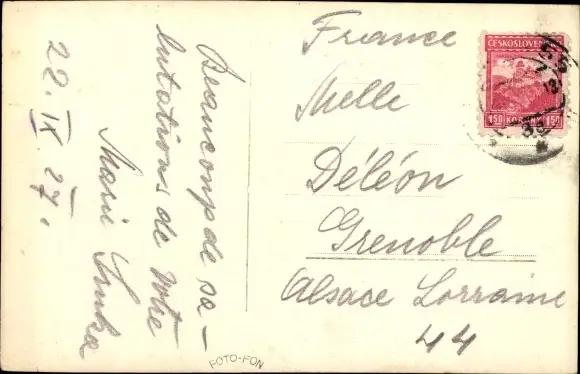 Beaucoup de sa-
lutations de votre
Marie
22. IX. 27.
France
Melle
Déléon
Grenoble
Alsace Lorraine
44
ČESKOSLOVEN
1.50 KORUNY 1.50
FOTO-FON